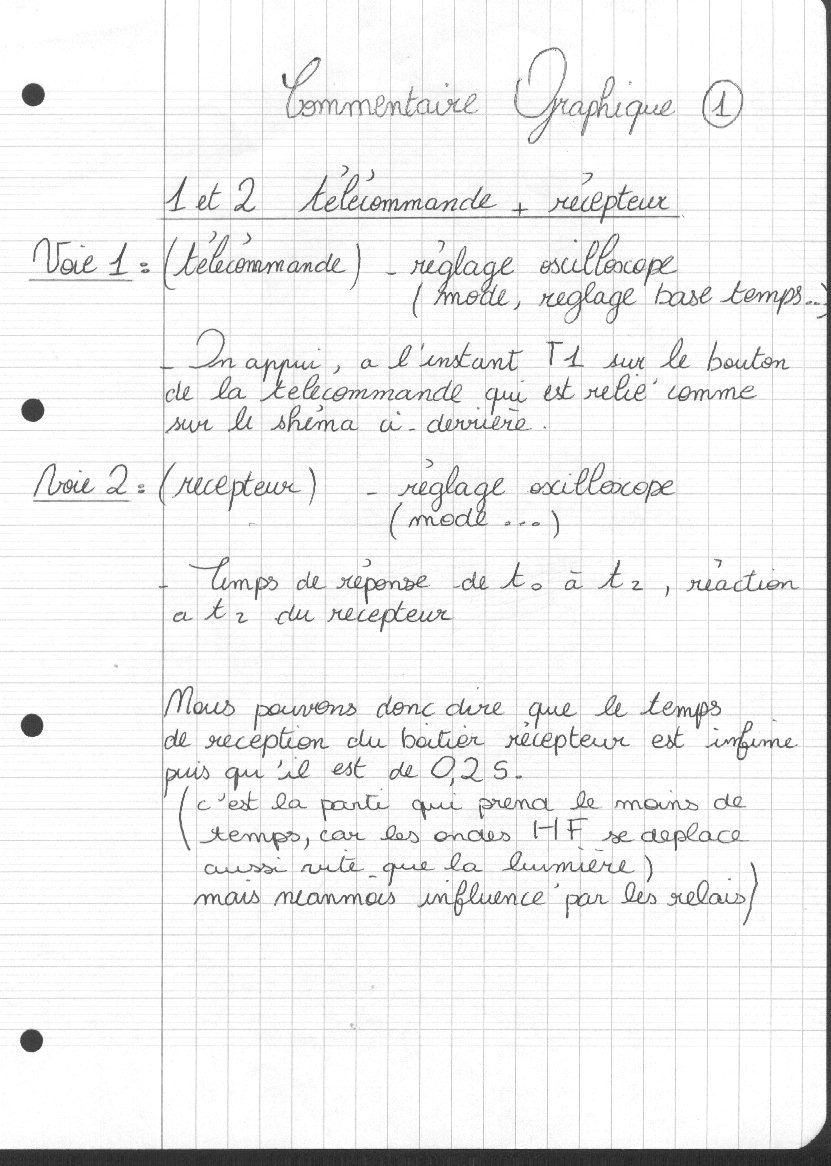 Commentaire Graphique 1
1 et 2 télécommande + récepteur
Voie 1 = (télécommande) - réglage oscilloscope
(mode, reglage base temps...)
- On appui, a l'instant T1 sur le bouton
de la telecommande qui est relié comme
sur le shéma ci-derrière.
Voie 2 = (recepteur) - réglage oscilloscope
(mode ...)
- Temps de réponse de to à t2, réaction
a t2 du recepteur
Nous pouvons donc dire que le temps
de reception du boitier récepteur est infime
puis qu'il est de 0,2 s.
(c'est la parti qui prend le moins de
temps, car les ondes HF se deplace
aussi vite que la lumière)
mais neanmois influencé par les relais)